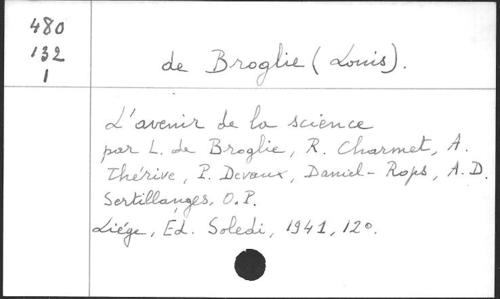 480
132
1
de Broglie (Louis).
L'avenir de la science
par L. de Broglie, R. Charmet, A.
Thérive, P. Devaux, Daniel-Rops, A.D.
Sertillanges, O.P.
Liége, Ed. Soledi, 1941, 12°.